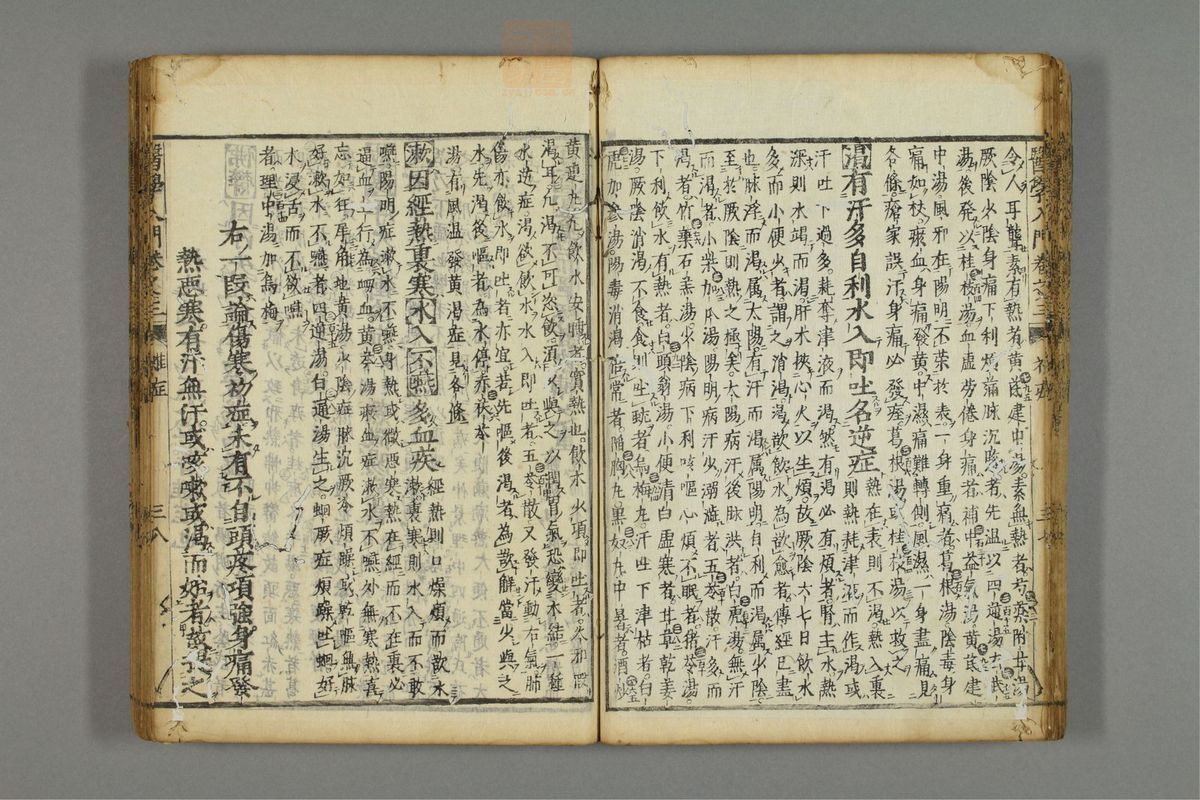 令人耳聾素有熱者黃芪建中湯素無熱者芍藥附甘湯
厥陰少陰身痛下利煩滿脉沉緊者先溫以四逆湯
湯後發以桂枝湯血虛勞倦身痛者補中益氣湯黃芪建
中湯風邪在陽明不榮於表一身重痛者葛根湯陰毒身
痛如杖瘀血汗身痛發黃中濕痛難轉側風濕一身盡痛見
各條瘡家誤汗身痛必發痙葛根湯或桂枝湯以救之
渴有汗多自利水入即吐名逆症
熱在表則不渴熱入裏則熱耗津液而作渴或
汗吐下過多耗奪津液而渴然有渴必有煩者腎主水熱
深則水竭而渴肝木挾心火以生煩故厥陰六七日飲水
多而小便少者謂之消渴渴欲飲水為欲愈者傳經已盡
也脉浮而渴屬太陽有汗而渴屬陽明自利而渴屬少陰
至於厥陰則熱之極矣太陽病汗後脉洪者白虎湯無汗
而渴者小柴加瓜湯陽明病汗少溺澁者五苓散汗多而
渴者竹葉石羔湯少陰病下利咳嘔心煩不眠者猪苓湯
下利飲水有熱者白頭翁湯小便清白虛寒者甘草乾姜
湯厥陰消渴不食食則吐蚘者烏梅丸汗吐下津枯者白
虎加參湯陽毒消渴倍常者陷胸丸黑奴丸中暑者酒炒
黃連丸飲水安睡者實熱也飲水少頃即吐者
渴耳凡渴不可恣飲須少與之以潤胃氣恐變水結
水逆症渴欲飲水水入即吐者五苓散又發汗動右氣肺
傷亦飲水即吐者亦宜若先嘔後渴者為欲解當少與之
水先渴後嘔者為水停赤茯苓
湯有風溫發黃渴症見各條
漱因經熱裏寒水入不嚥多血疾
經熱則口燥煩而欲水
漱裏寒則水入而不敢
嚥陽明症漱水不嚥身熱或微惡寒熱在經而不在裏必
逼血上行為衂血黃芩湯瘀血症漱水不嚥外無寒熱喜
忘如狂犀角地黃湯少陰症脉沉厥冷煩躁或乾嘔無脉
好漱水不嚥者四逆湯白通湯主之蚘厥症煩躁吐蚘好
水浸舌而不欲嚥
者理中湯加烏梅
右一段論傷寒初症未有不自頭疼項強身痛發
熱惡寒有汗無汗或咳嗽或渴而始者故張之
醫學入門 卷之三 雜症
三八